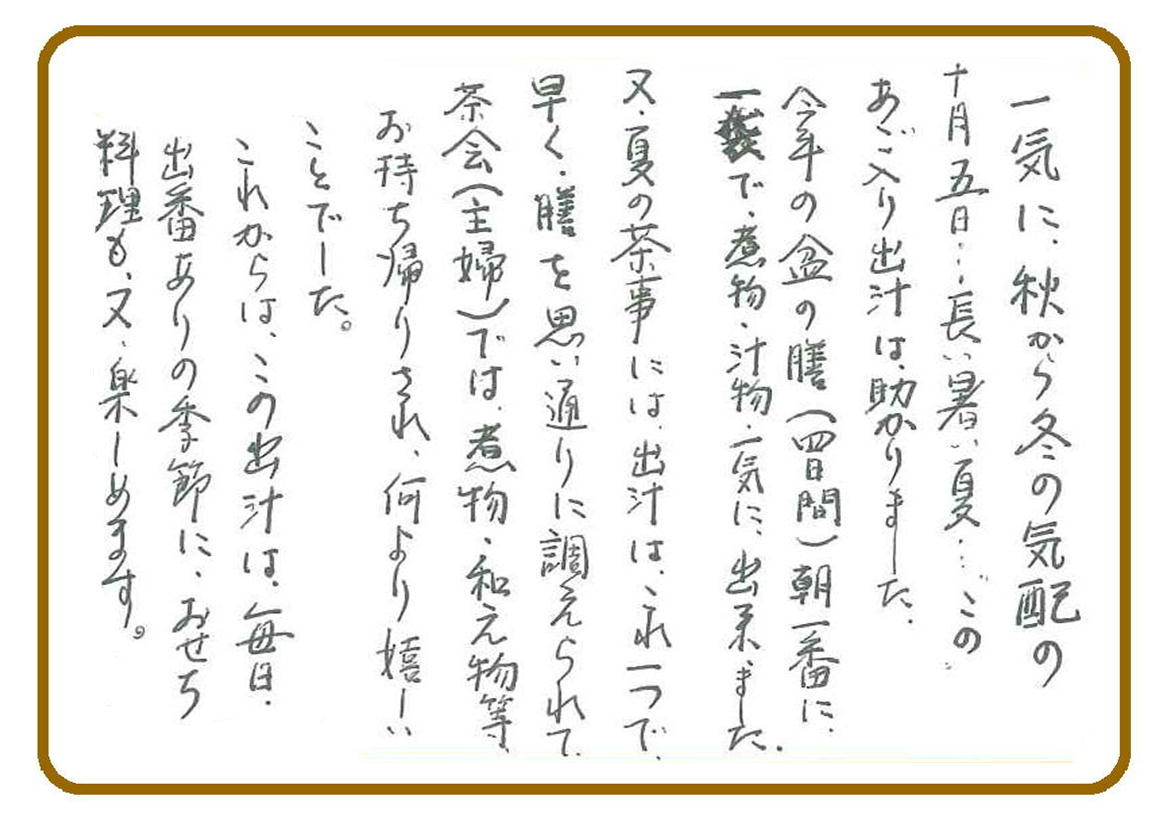 一気に、秋から冬の気配の
十月五日…長い暑い夏…、この
あご入り出汁は、助かりました。
今年の盆の膳(四日間)朝一番に、
一袋で、煮物・汁物・一気に、出来ました。
又、夏の茶事には、出汁は、これ一つで、
早く、膳を思い通りに調えられて、
茶会(主婦)では、煮物・和え物等、
お持ち帰りされ、何より嬉しい
ことでした。
これからは、この出汁は、毎日、
出番ありの季節に、おせち
料理も、又、楽しめます。